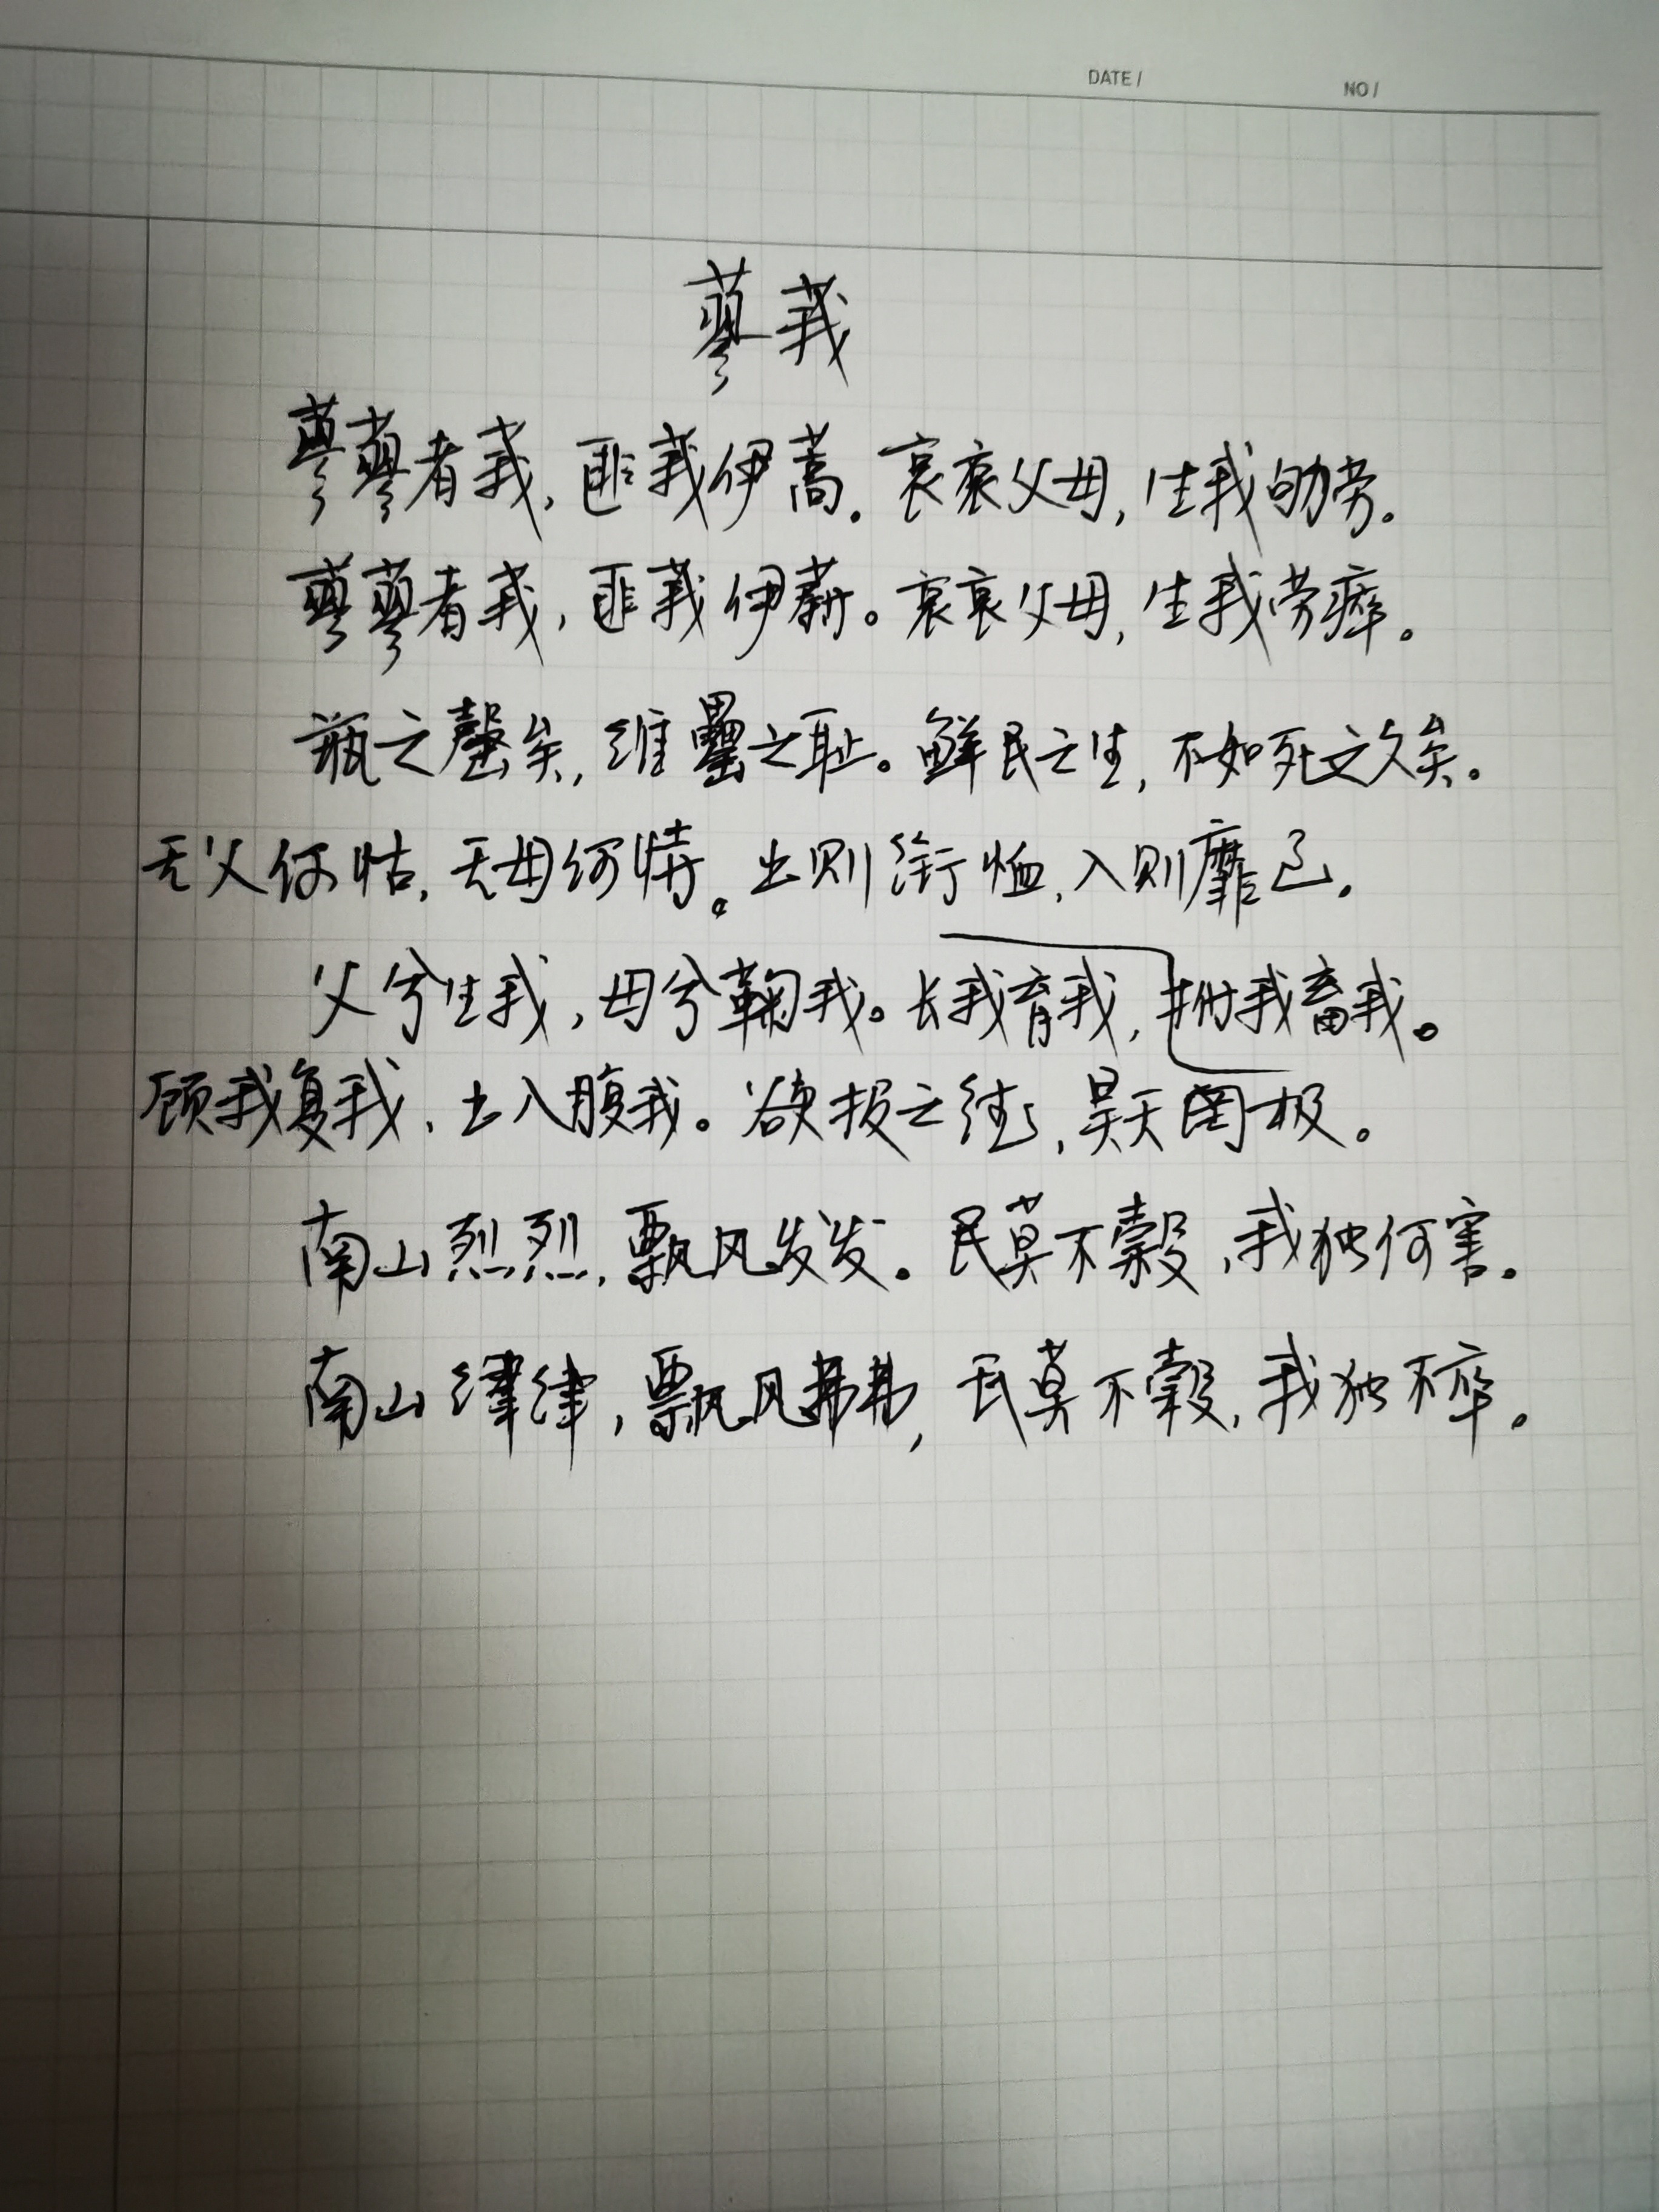 DATE/ NO/
蓼莪
蓼蓼者莪,匪莪伊蒿.哀哀父母,生我劬劳.
蓼蓼者莪,匪莪伊蔚。哀哀父母,生我劳瘁。
瓶之罄矣,维罍之耻。鲜民之生,不如死之久矣。
无父何怙,无母何恃。出则衔恤,入则靡至.
父兮生我,母兮鞠我。长我育我,拊我畜我。
顾我复我,出入腹我。欲报之德,昊天罔极。
南山烈烈,飘风发发。民莫不穀,我独何害。
南山律律,飘风弗弗,民莫不穀,我独不卒。